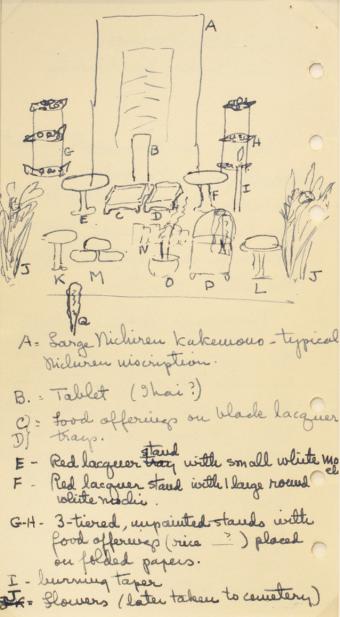 A
G
B
H
I
E
C
D
F
N
J
K
M
O
P
L
J
Q
A = Large Nichiren Kakemono - typical
Nichiren inscription.
B. = Tablet (Ihai?)
C) = Food offerings on black lacquer
D) trays.
E - Red lacquer stand with small white mochi
F - Red lacquer stand with 1 large round
white mochi.
G-H - 3-tiered, unpainted stands with
food offerings (rice ?) placed
on folded papers.
I - burning taper
J = Flowers (later taken to cemetery)